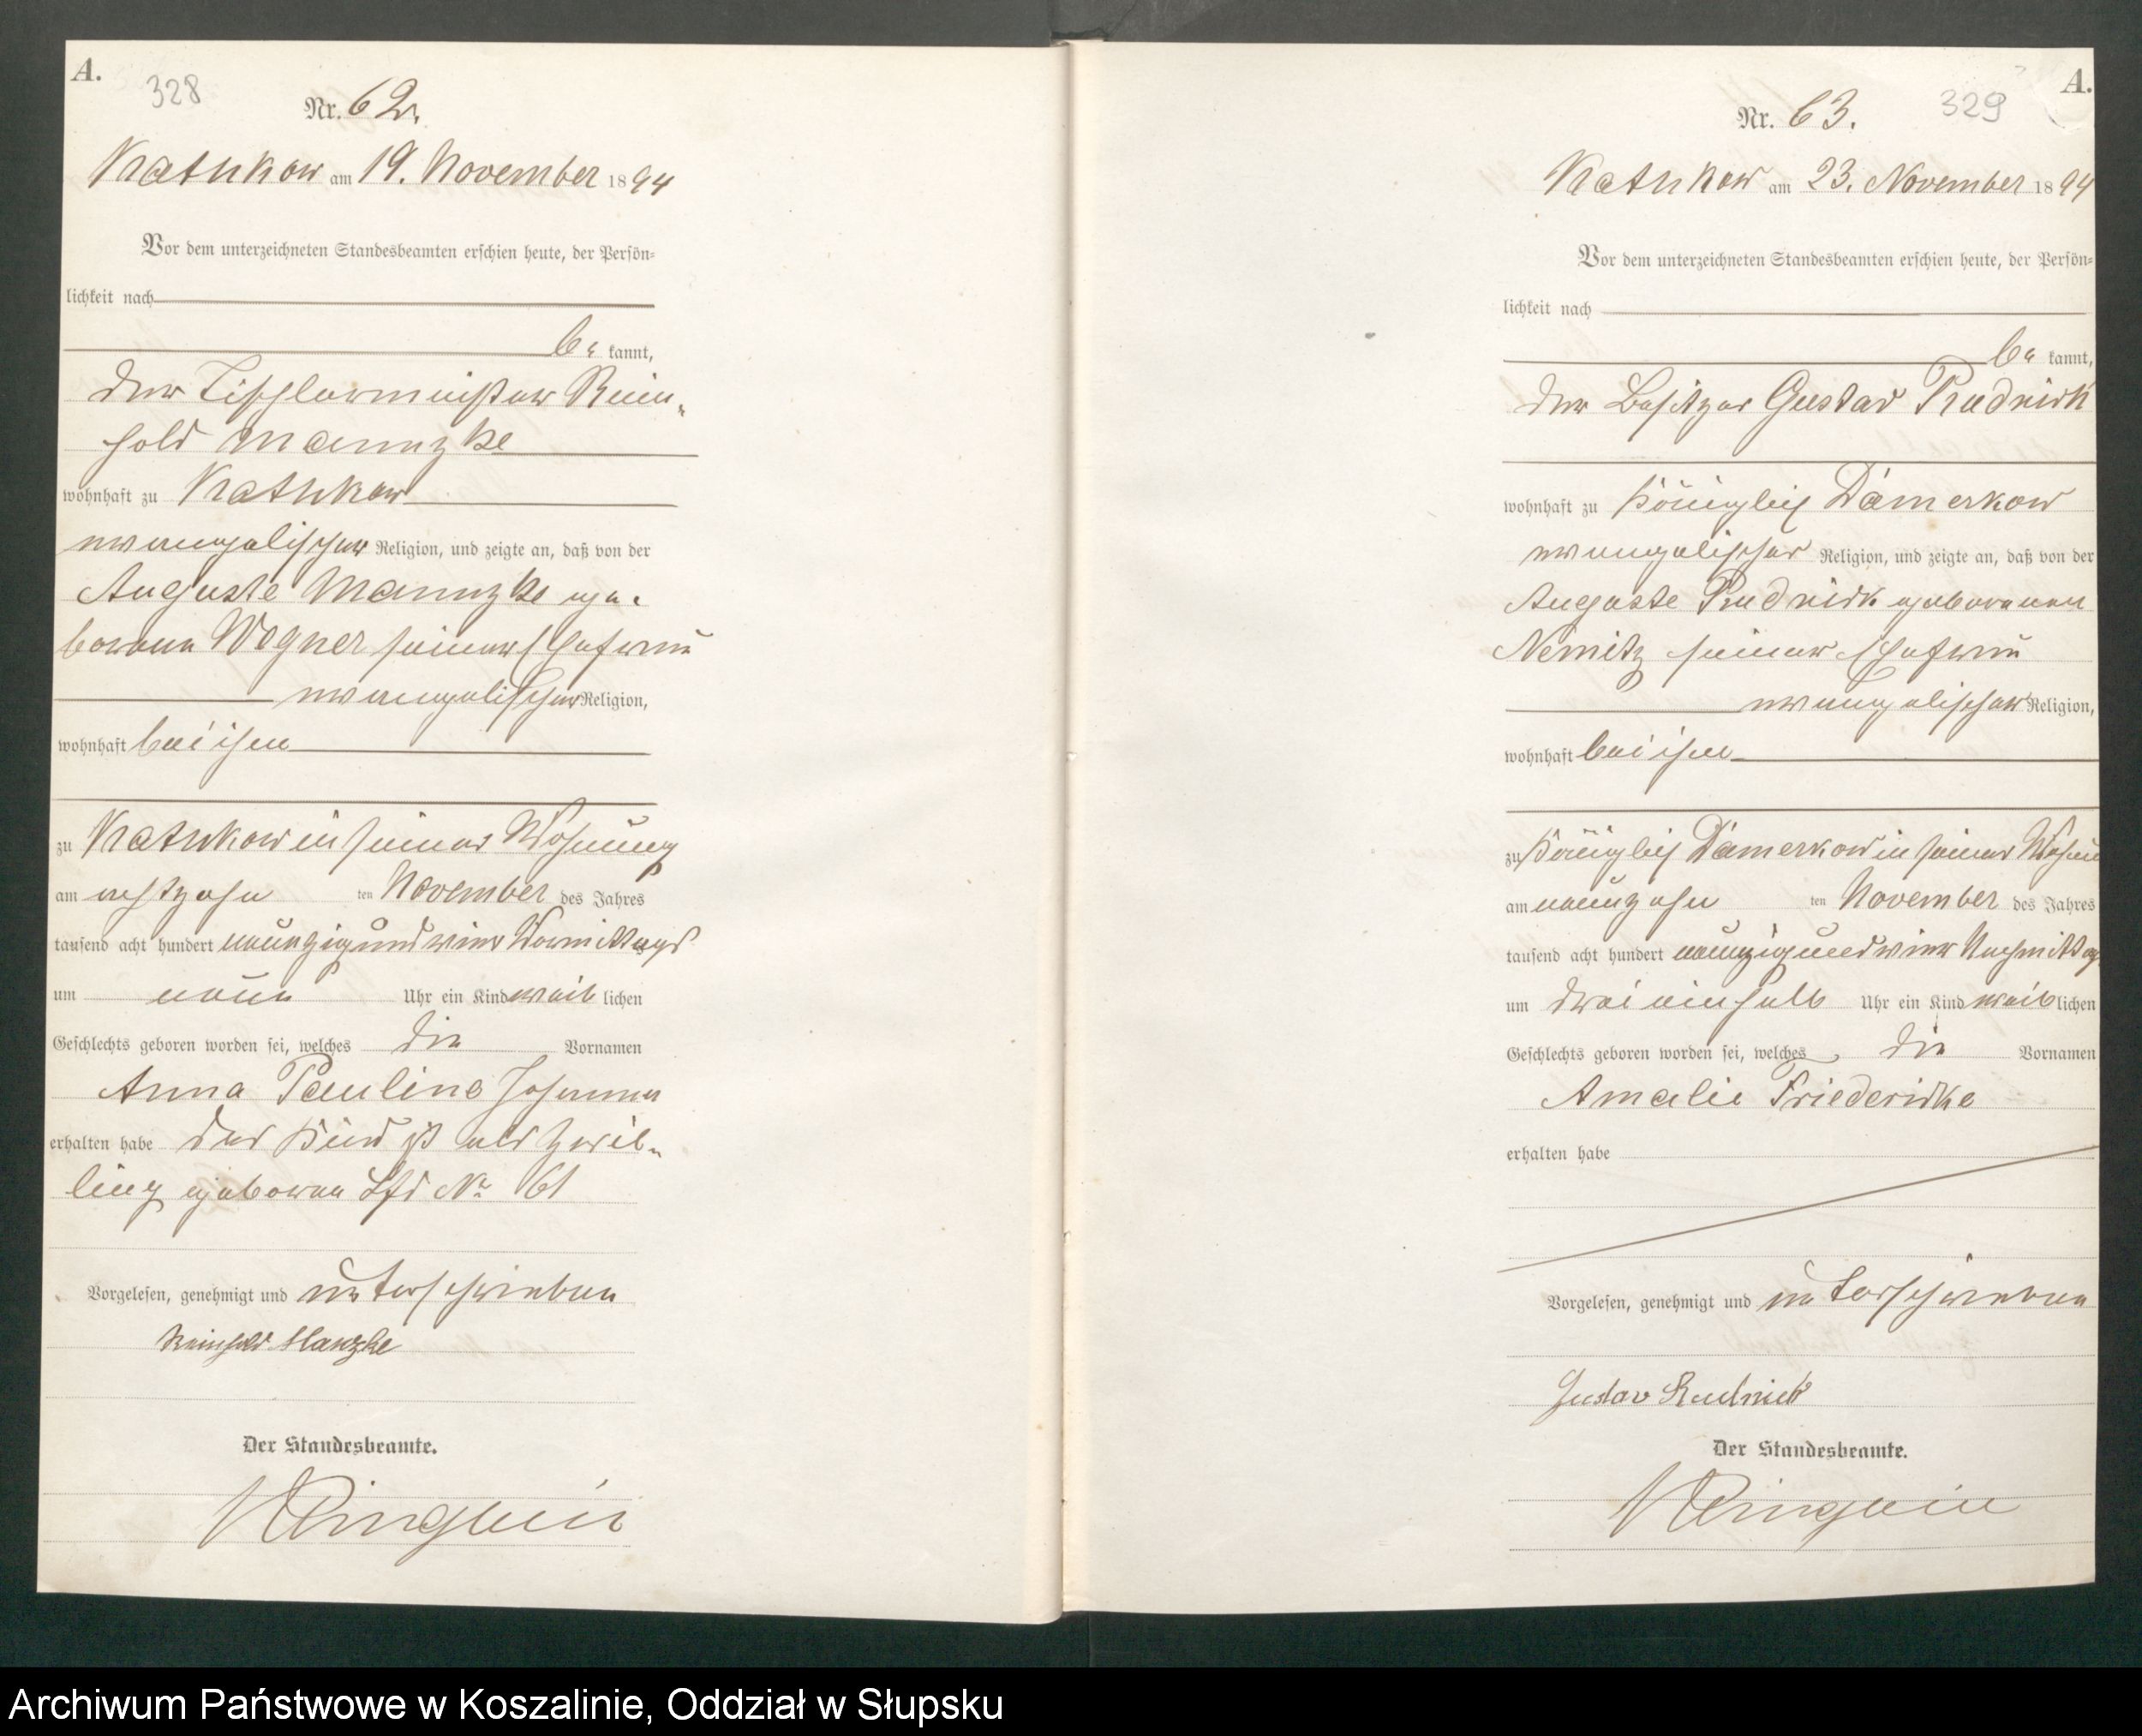 A.
328
Nr. 62.
Kathkow am 19. November 1894
Vor dem unterzeichneten Standesbeamten erschien heute, der Persön-
lichkeit nach
be kannt,
der Tischlermeister Rein-
hold Mannzke
wohnhaft zu Kathkow
evangelischer Religion, und zeigte an, daß von der
Auguste Mannzke ge-
borene Wogner seiner Ehefrau
evangelischer Religion,
wohnhaft bei ihm
zu Kathkow in seiner Wohnung
am achtzehn ten November des Jahres
tausend acht hundert neunzig und vier Vormittags
um neun Uhr ein Kind weib lichen
Geschlechts geboren worden sei, welches die Vornamen
Anna Pauline Johanna
erhalten habe Das Kind ist als Zwil-
ling geboren Lfd Nr 61
Vorgelesen, genehmigt und unterschrieben
Reinhold Manzke
Der Standesbeamte.
A.
329
Nr. 63.
Kathkow am 23. November 1894
Vor dem unterzeichneten Standesbeamten erschien heute, der Persön-
lichkeit nach
be kannt,
der Besitzer Gustav Rudnick
wohnhaft zu Königlich Damerkow
evangelischer Religion, und zeigte an, daß von der
Auguste Rudnick geborenen
Nemitz seiner Ehefrau
evangelischer Religion,
wohnhaft bei ihm
zu Königlich Damerkow in seiner Wohnu
am neunzehn ten November des Jahres
tausend acht hundert neunzig und vier Nachmittag
um drei einhalb Uhr ein Kind weib lichen
Geschlechts geboren worden sei, welches die Vornamen
Amalie Friederike
erhalten habe
Vorgelesen, genehmigt und unterschrieben
Gustav Rudnick
Der Standesbeamte.
Archiwum Państwowe w Koszalinie, Oddział w Słupsku